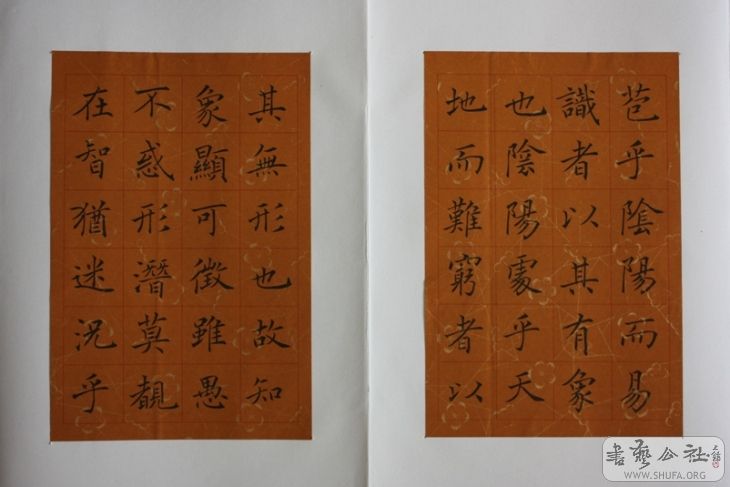 苞乎陰陽而易
識者以其有象
也陰陽處乎天
地而難窮者以
其無形也故知
象顯可徵雖愚
不惑形潛莫覩
在智猶迷況乎
書藝公社
WWW.SHUFA.ORG